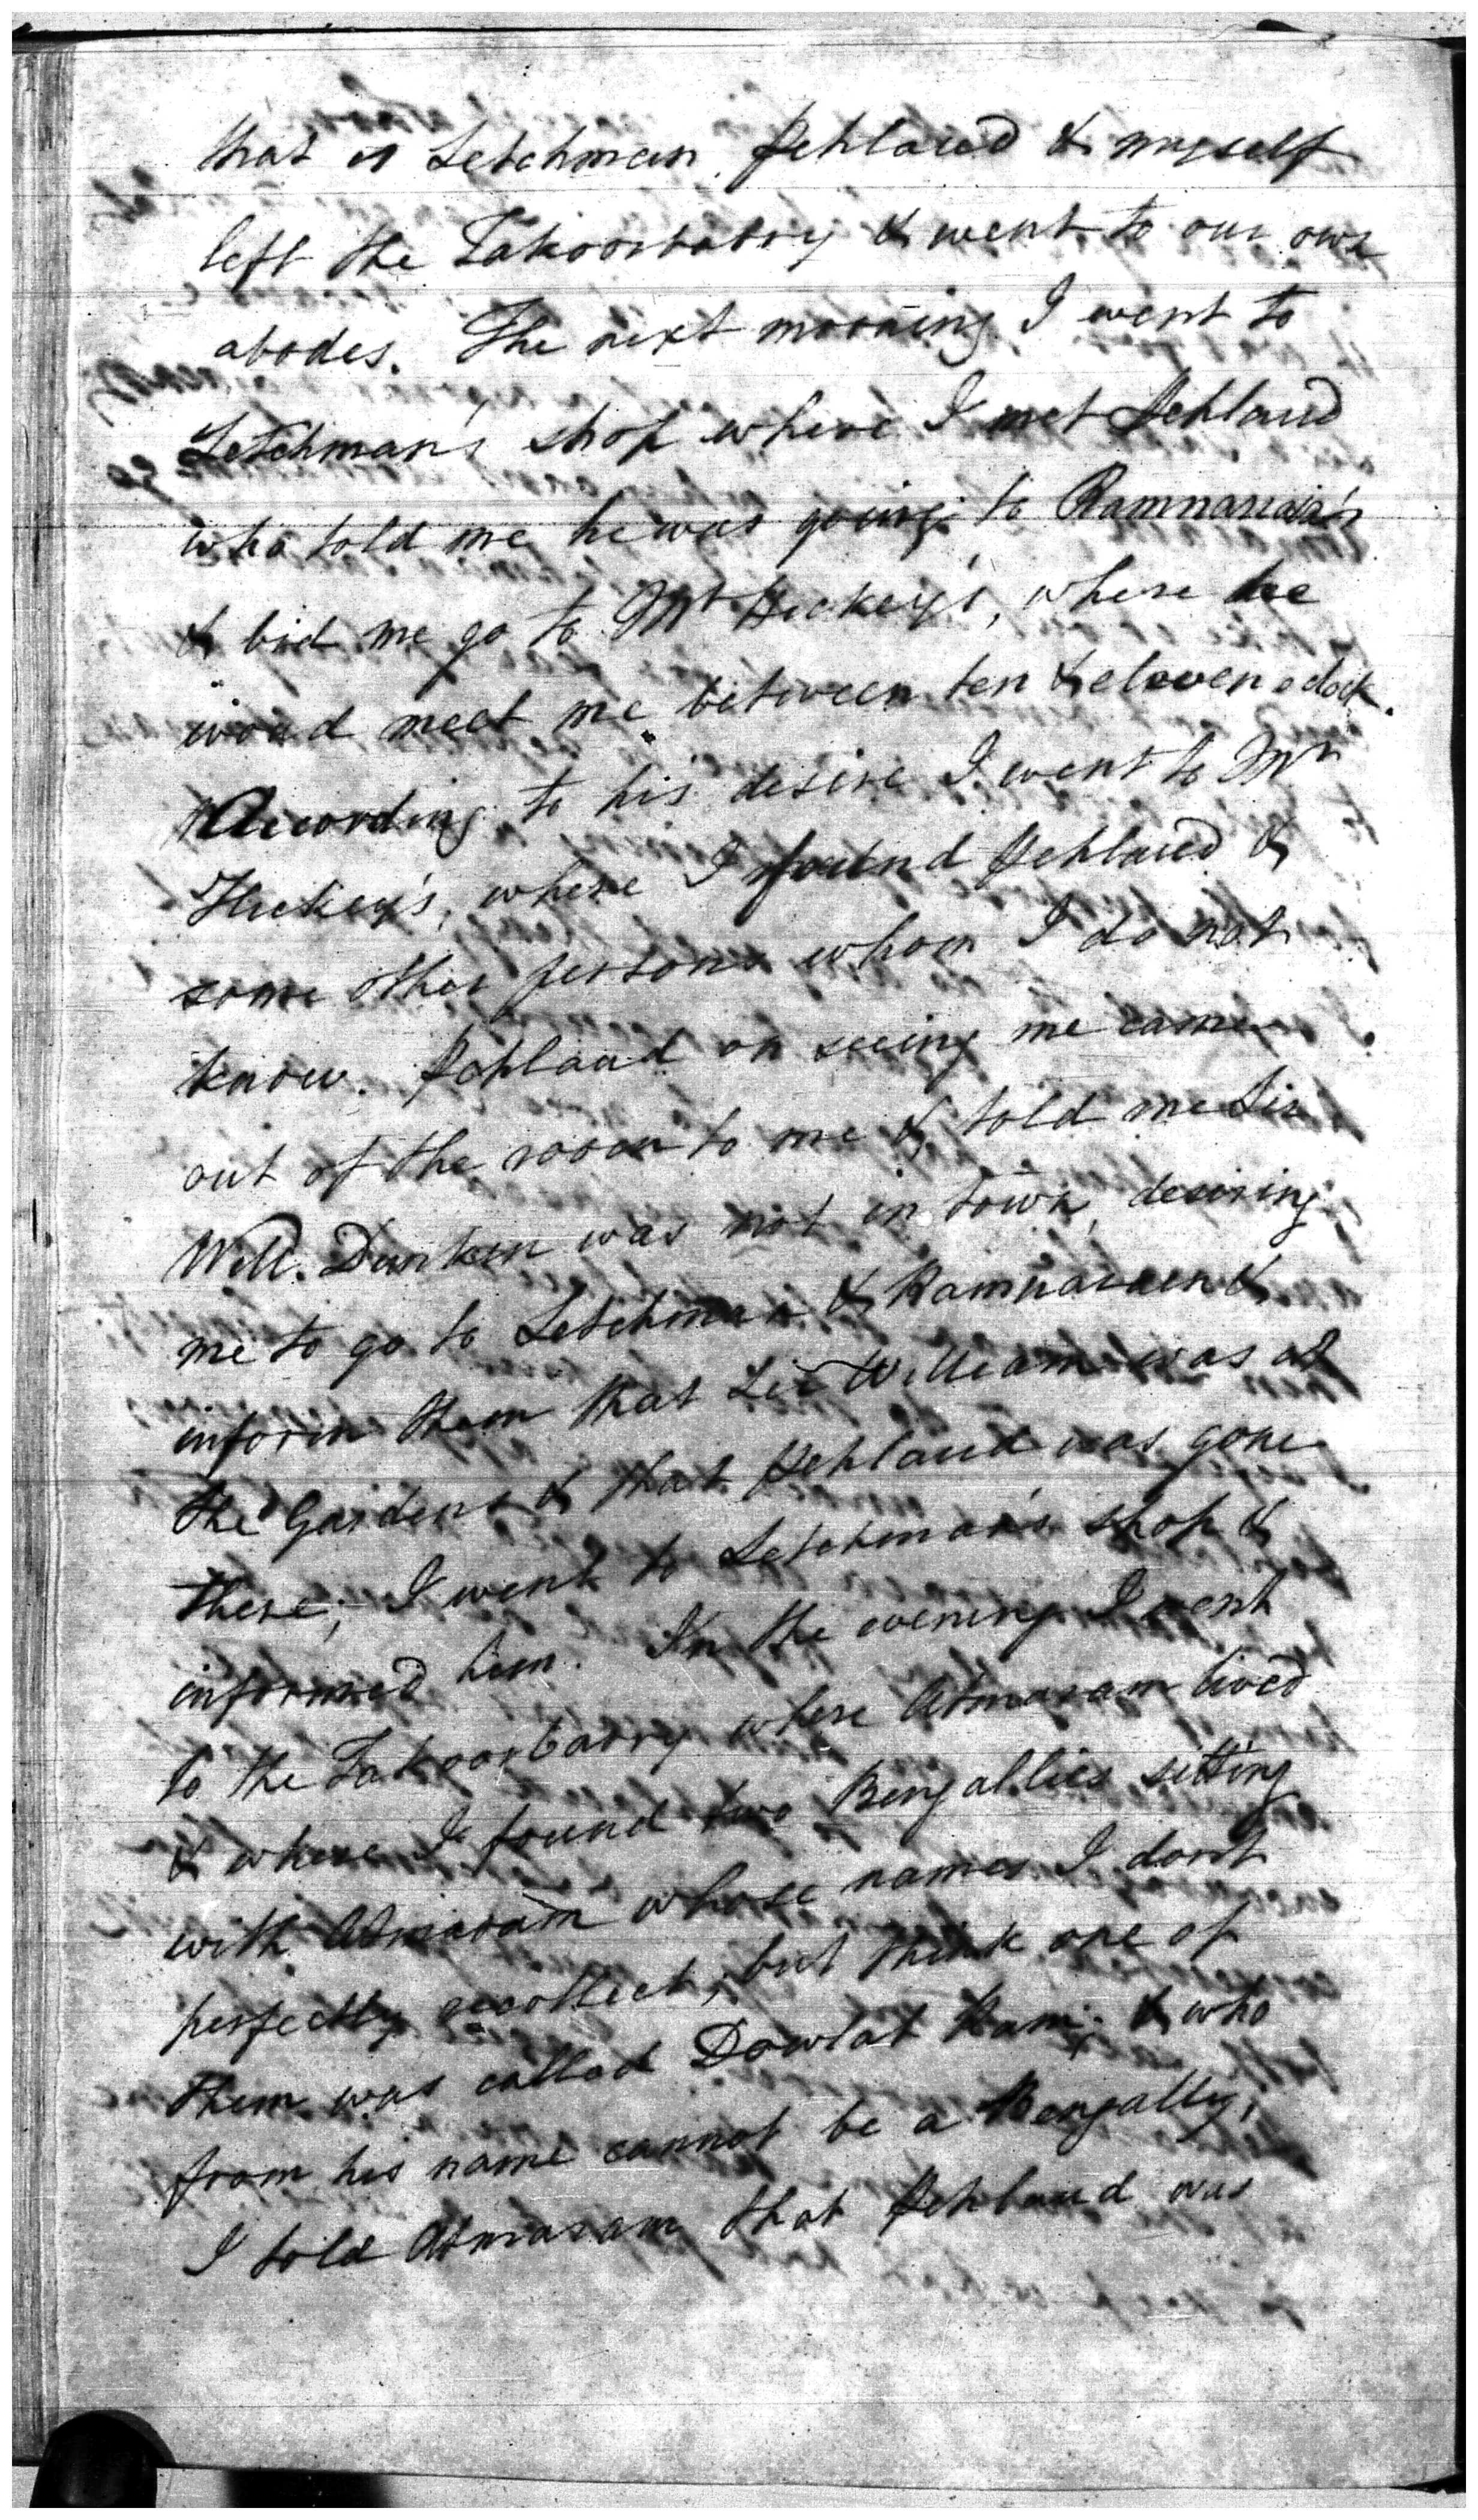 that is Letchman, Pehlaud & myself
left the Takoorbarry & went to our own
abodes. The next morning I went to
Letchman's shop where I met Pehlaud
who told me he was going to Ramnarain's
& bid me go to Mr Hickey's, where he
woud meet me between ten & eleven o clock.
According to his desire I went to Mr
Hickey's, where I found Pehlaud &
some other persons whom I do not
know. Pehlaud on seeing me came
out of the room to me & told me Sir
Will. Dunkin was not in town, desiring
me to go to Letchman & Ramnaraen &
inform them that Sir William was at
the Gardens & that Pehlaud was gone
there; I went to Letchman's shop &
informed him. In the evening I went
to the Takoorbarry where Atmaram lived
& where I found two Bengallies sitting
with Atmaram whose names I dont
perfectly recollect, but think one of
them was called Dowlat Ram; & who
from his name cannot be a Bengally,
I told Atmaram that Pehlaud was